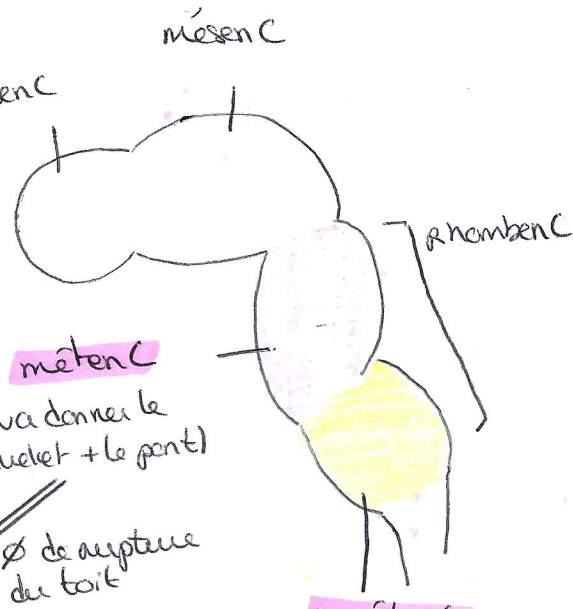 mésenC
enC
RhombenC
métenC
va donner le
velet + le pont)
Ø de rupture
du toit